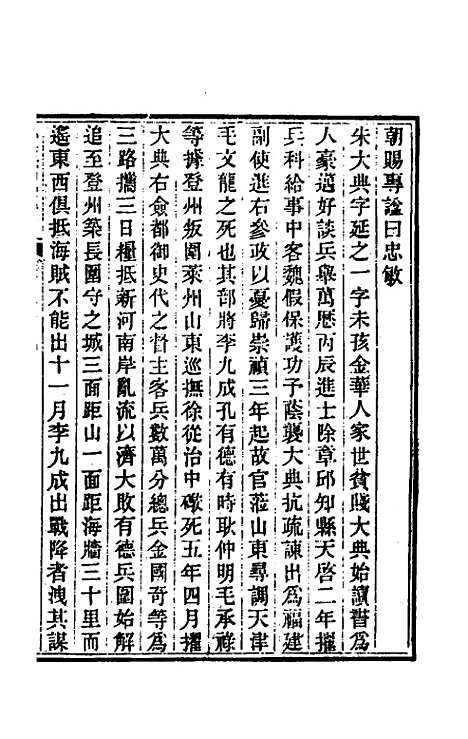 朝賜專諡曰忠敏
朱大典字延之一字未孩金華人家世貧賤大典始讀書爲
人豪邁好談兵舉萬歷丙辰進士除章邱知縣天啓二年擢
兵科給事中客魏假保護功子蔭襲大典抗疏諫出爲福建
副使進右參政以憂歸崇禎三年起故官蒞山東尋調天津
毛文龍之死也其部將李九成孔有德有時耿仲明毛承祿
等據登州叛圍萊州山東巡撫徐從治中礮死五年四月擢
大典右僉都御史代之督主客兵數萬分總兵金國奇等爲
三路攜三日糧抵新河南岸亂流以濟大敗有德兵圍始解
追至登州築長圍守之城三面距山一面距海牆三十里而
遙東西俱抵海賊不能出十一月李九成出戰降者洩其謀